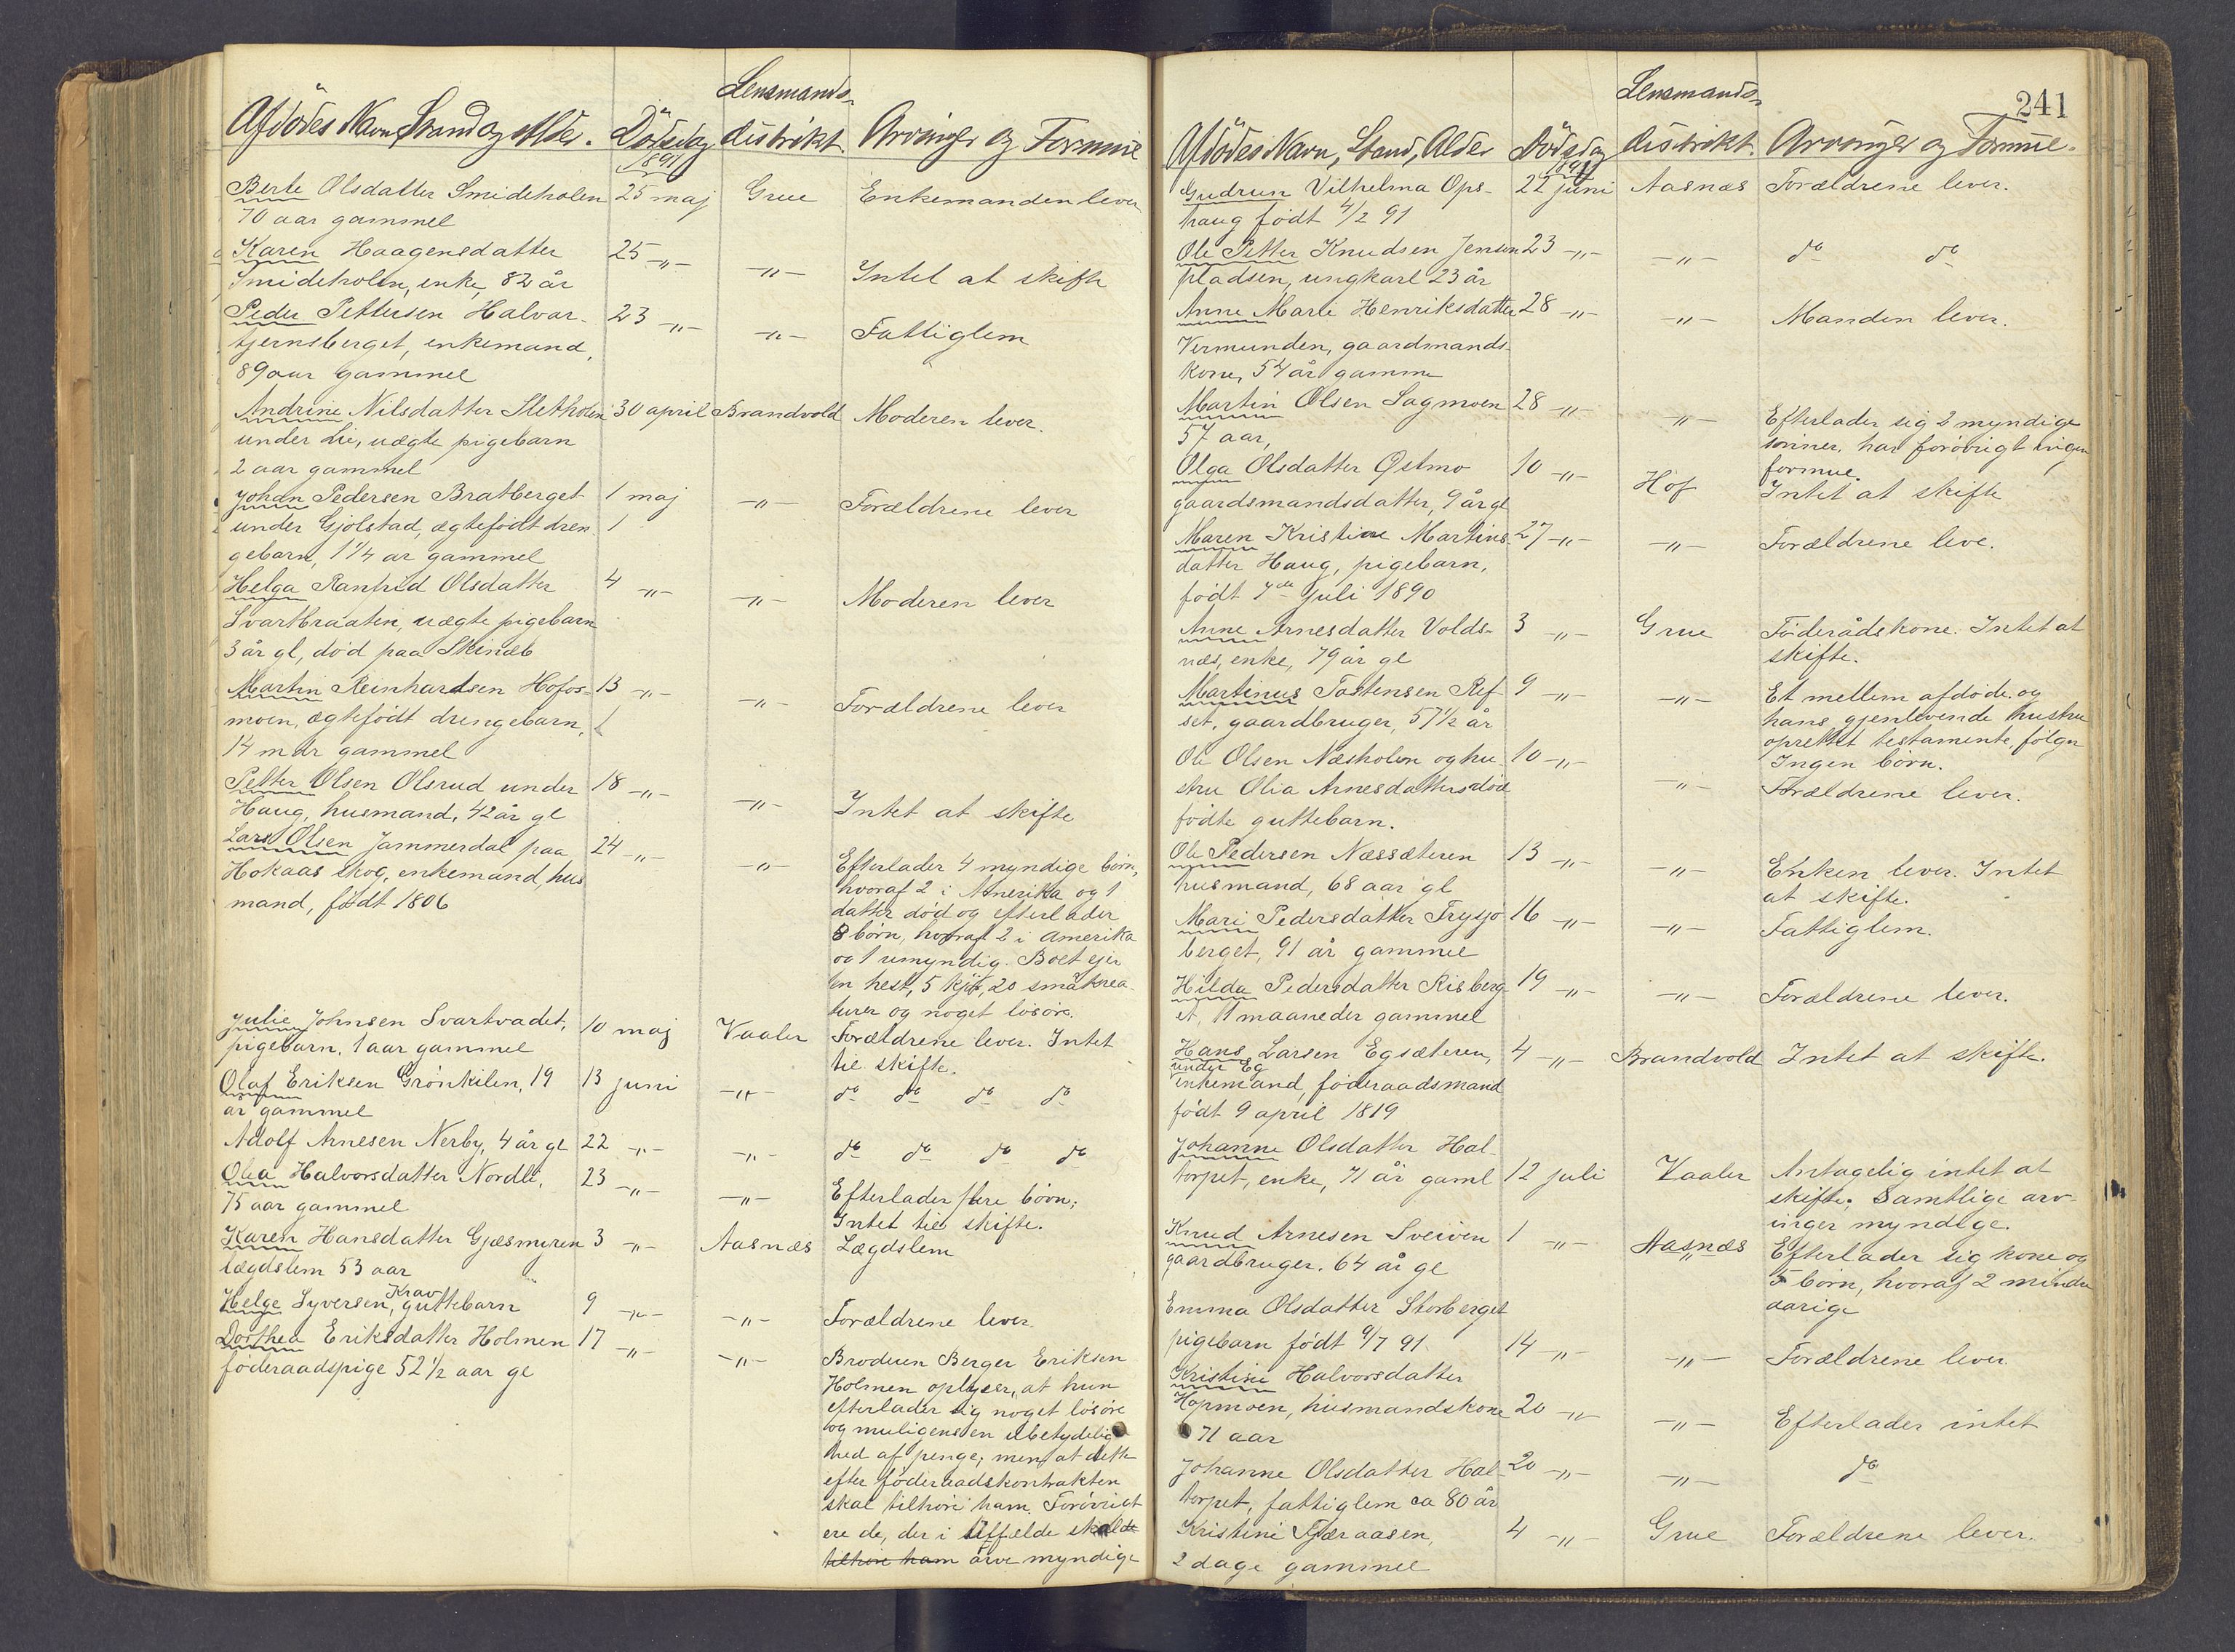 Lensmands-
Afdödes Navn, Stand og Alder. Dödsdag distrikt. Arvinger og Formue
1891
Berte Olsdatter Smideholen 25 maj Grue Enkemanden lever
70 aar gammel
Karen Haagensdatter 25 -„- -„- Intet at skifte
Smideholen, enke, 82 år
Peder Pettersen Halvar- 23 -„- -„- Fattiglem
tjernsberget, enkemand,
89 aar gammel
Andrine Nilsdatter Sletholen 30 april Brandvold Moderen lever.
under Lie, uægte pigebarn
2 aar gammel
Johan Pedersen Bratberget 1 maj -„- Forældrene lever
under Gjølstad, ægtefødt dren- 1
gebarn, 1 1/4 ar gammel
Helga Ranfrid Olsdatter 4 -„- -„- Moderen lever
Svartbraaten, uægte pigebarn
3 år gl, død paa Skinæb
Martin Reinhardsen Hofos- 13 -„- -„- Forældrene lever
moen, ægtefødt drengebarn, 1
14 mdr gammel
Petter Olsen Olsrud under 18 -„- -„- Intet at skifte
Haug, husmand, 42 år gl
Lars Olsen Jammerdal paa 24 -„- -„- Efterlader 4 myndige børn,
Hokaas skog, enkemand, hus
mand, født 1806
hvoraf 2 i Amerika og 1
datter død og efterlader
8 børn, hvoraf 2 i Amerika
og 1 umyndig. Boet ejer
en hest, 5 kjør, 20 småkrea-
turer og noget løsøre.
Julie Johnsen Svartvadet, 10 maj Vaaler Forældrene lever. Intet
pigebarn, 1 aar gammel til skifte.
Olaf Eriksen Grønkilen, 19 13 juni -„- do do do do
år gammel
Adolf Arnesen Nerby, 4 år gl 22 -„- -„- do do do do
Olea Halvorsdatter Nordli, 23 -„- -„- Efterlader flere børn;
75 aar gammel Intet til skifte.
Karen Hansdatter Gjæsmyren 3 -„- Aasnæs Lægdslem
lægdslem 53 aar
Krav
Helge Syversen, guttebarn 9 -„- -„- Forældrene lever.
Dorthea Eriksdatter Holmen 17 -„- -„- Broderen Berger Eriksen
føderaadspige 52 1/2 aar gl
Holmen oplyser, at hun
efterlader sig noget løsøre
og muligens en ubetydelig
hed af penge, men at dette
efter føderaadskontrakten
skal tilhøre ham. Forøvrigt
ere de, der i tilfælde skulde
tilhøre ham arve myndige
241
Lensmands-
Afdödes Navn, Stand, Alder Dödsdag distrikt. Arvinger og Formue.
1891
Gudrun Vilhelma Ops- 22 juni Aasnæs Forældrene lever.
haug født 4/2 91
Ole Petter Knudsen Jensen 23 -„- -„- do do
pladsen, ungkarl 23 år
Anne Marie Henriksdatter 28 -„- -„- Manden lever.
Vermunden, gaardmands-
kone, 54 år gamme
Martin Olsen Sagmoen 28 -„- -„- Efterlader sig 2 myndige
57 aar, sønner, har forøvrigt ingen
formue
Olga Olsdatter Østmo 10 -„- Hof Intet at skifte
gaardsmandsdatter, 9 år gl
Maren Kristine Martins- 27 -„- -„- Forældrene leve.
datter Haug, pigebarn,
født 7de Juli 1890
Anne Arnesdatter Volds- 3 -„- Grue Føderådskone. Intet at
næs, enke, 79 år gl skifte.
Martinus Tostensen Ref- 9 -„- -„- Et mellem afdøde og
set, gaardbruger, 57 1/2 år hans gjenlevende hustru
oprettet testamente følger
Ingen børn.
Ole Olsen Næsholen og hu- 10 -„- -„- Forældrene lever.
stru Olia Arnesdatters død
fødte guttebarn.
Ole Pedersen Næssæteren 13 -„- -„- Enken lever. Intet
husmand, 68 aar gl at skifte.
Mari Pedersdatter Frysjø- 16 -„- -„- Fattiglem.
berget, 91 år gammel
Hilda Pedersdatter Risberg- 19 -„- -„- Forældrene lever.
et, 11 maaneder gammel
Hans Larsen Egsæteren, 4 -„- Brandvold Intet at skifte.
under Eg
enkemand, føderaadsmand
født 9 april 1819
Johanne Olsdatter Hal-
torpet, enke, 71 år gaml 12 juli Vaaler Antagelig intet at
skifte. Samtlige arv-
inger myndige.
Knud Arnesen Sveiven 1 -„- Aasnæs Efterlader sig kone og
gaardbruger. 64 år gl 5 børn, hvoraf 2 mindre
aarige
Emma Olsdatter Storberget
pigebarn født 9/7 91. 14 -„- -„- Forældrene lever.
Kristine Halvorsdatter
Hopmoen, husmandskone 20 -„- -„- Efterlader intet
71 aar
Johanne Olsdatter Hal- 20 -„- -„- do
torpet, fattiglem ca 80 år
Kristine Tjæraasen, 4 -„- Grue Forældrene lever.
2 dage gammel